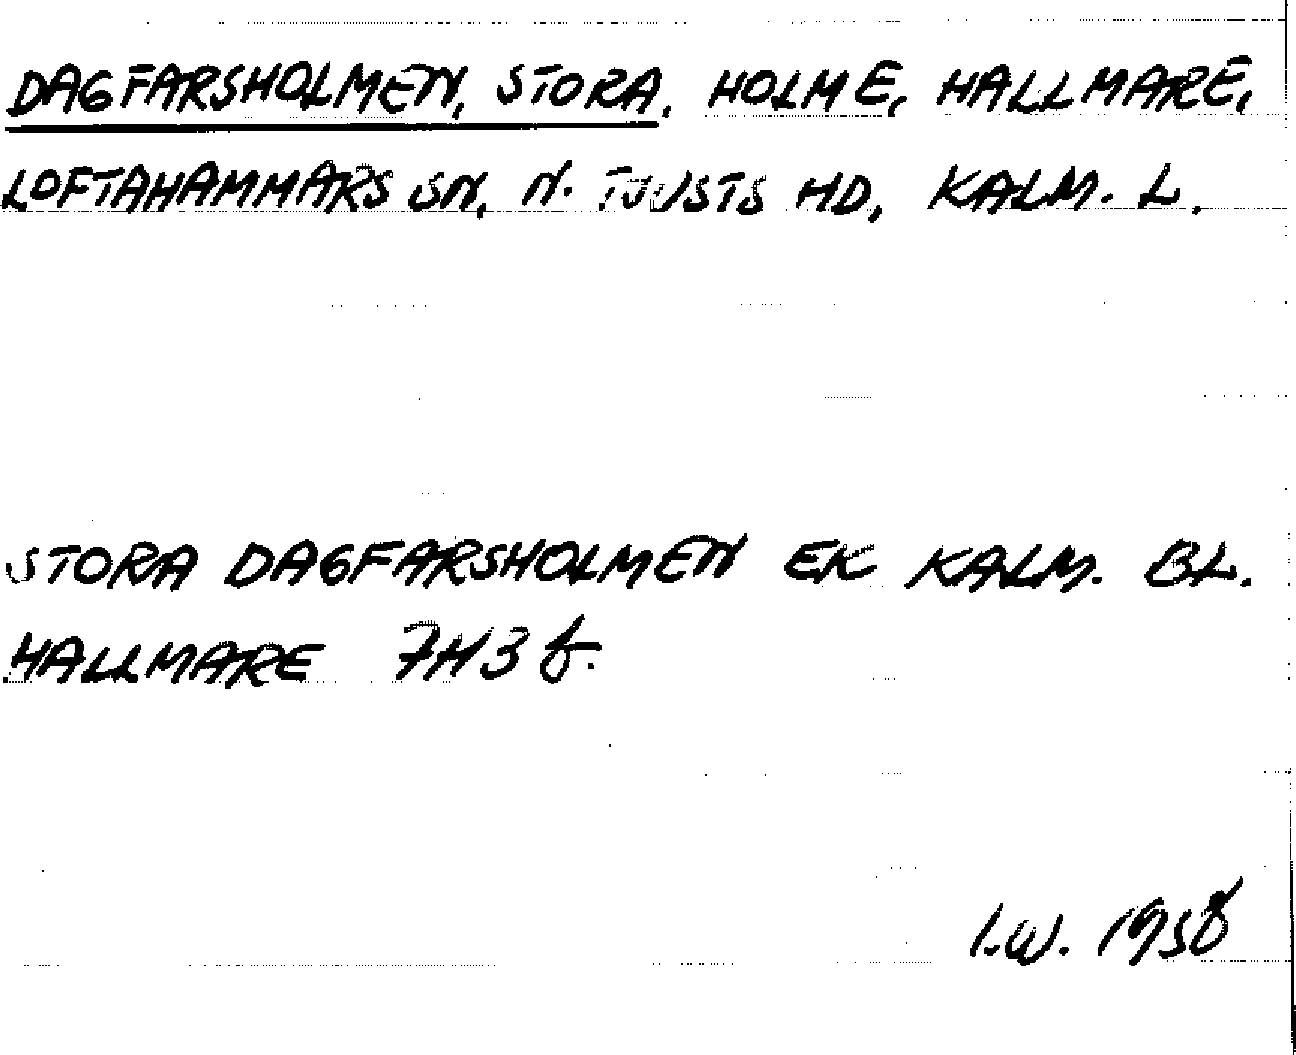 DAGFARSHOLMEN, STORA, HOLME, HALLMARE,
LOFTAHAMMARS SN, N. TJUSTS HD, KALM. L.
STORA DAGFARSHOLMEN EK KALM. BL.
HALLMARE 7H3f.
I.W. 1958